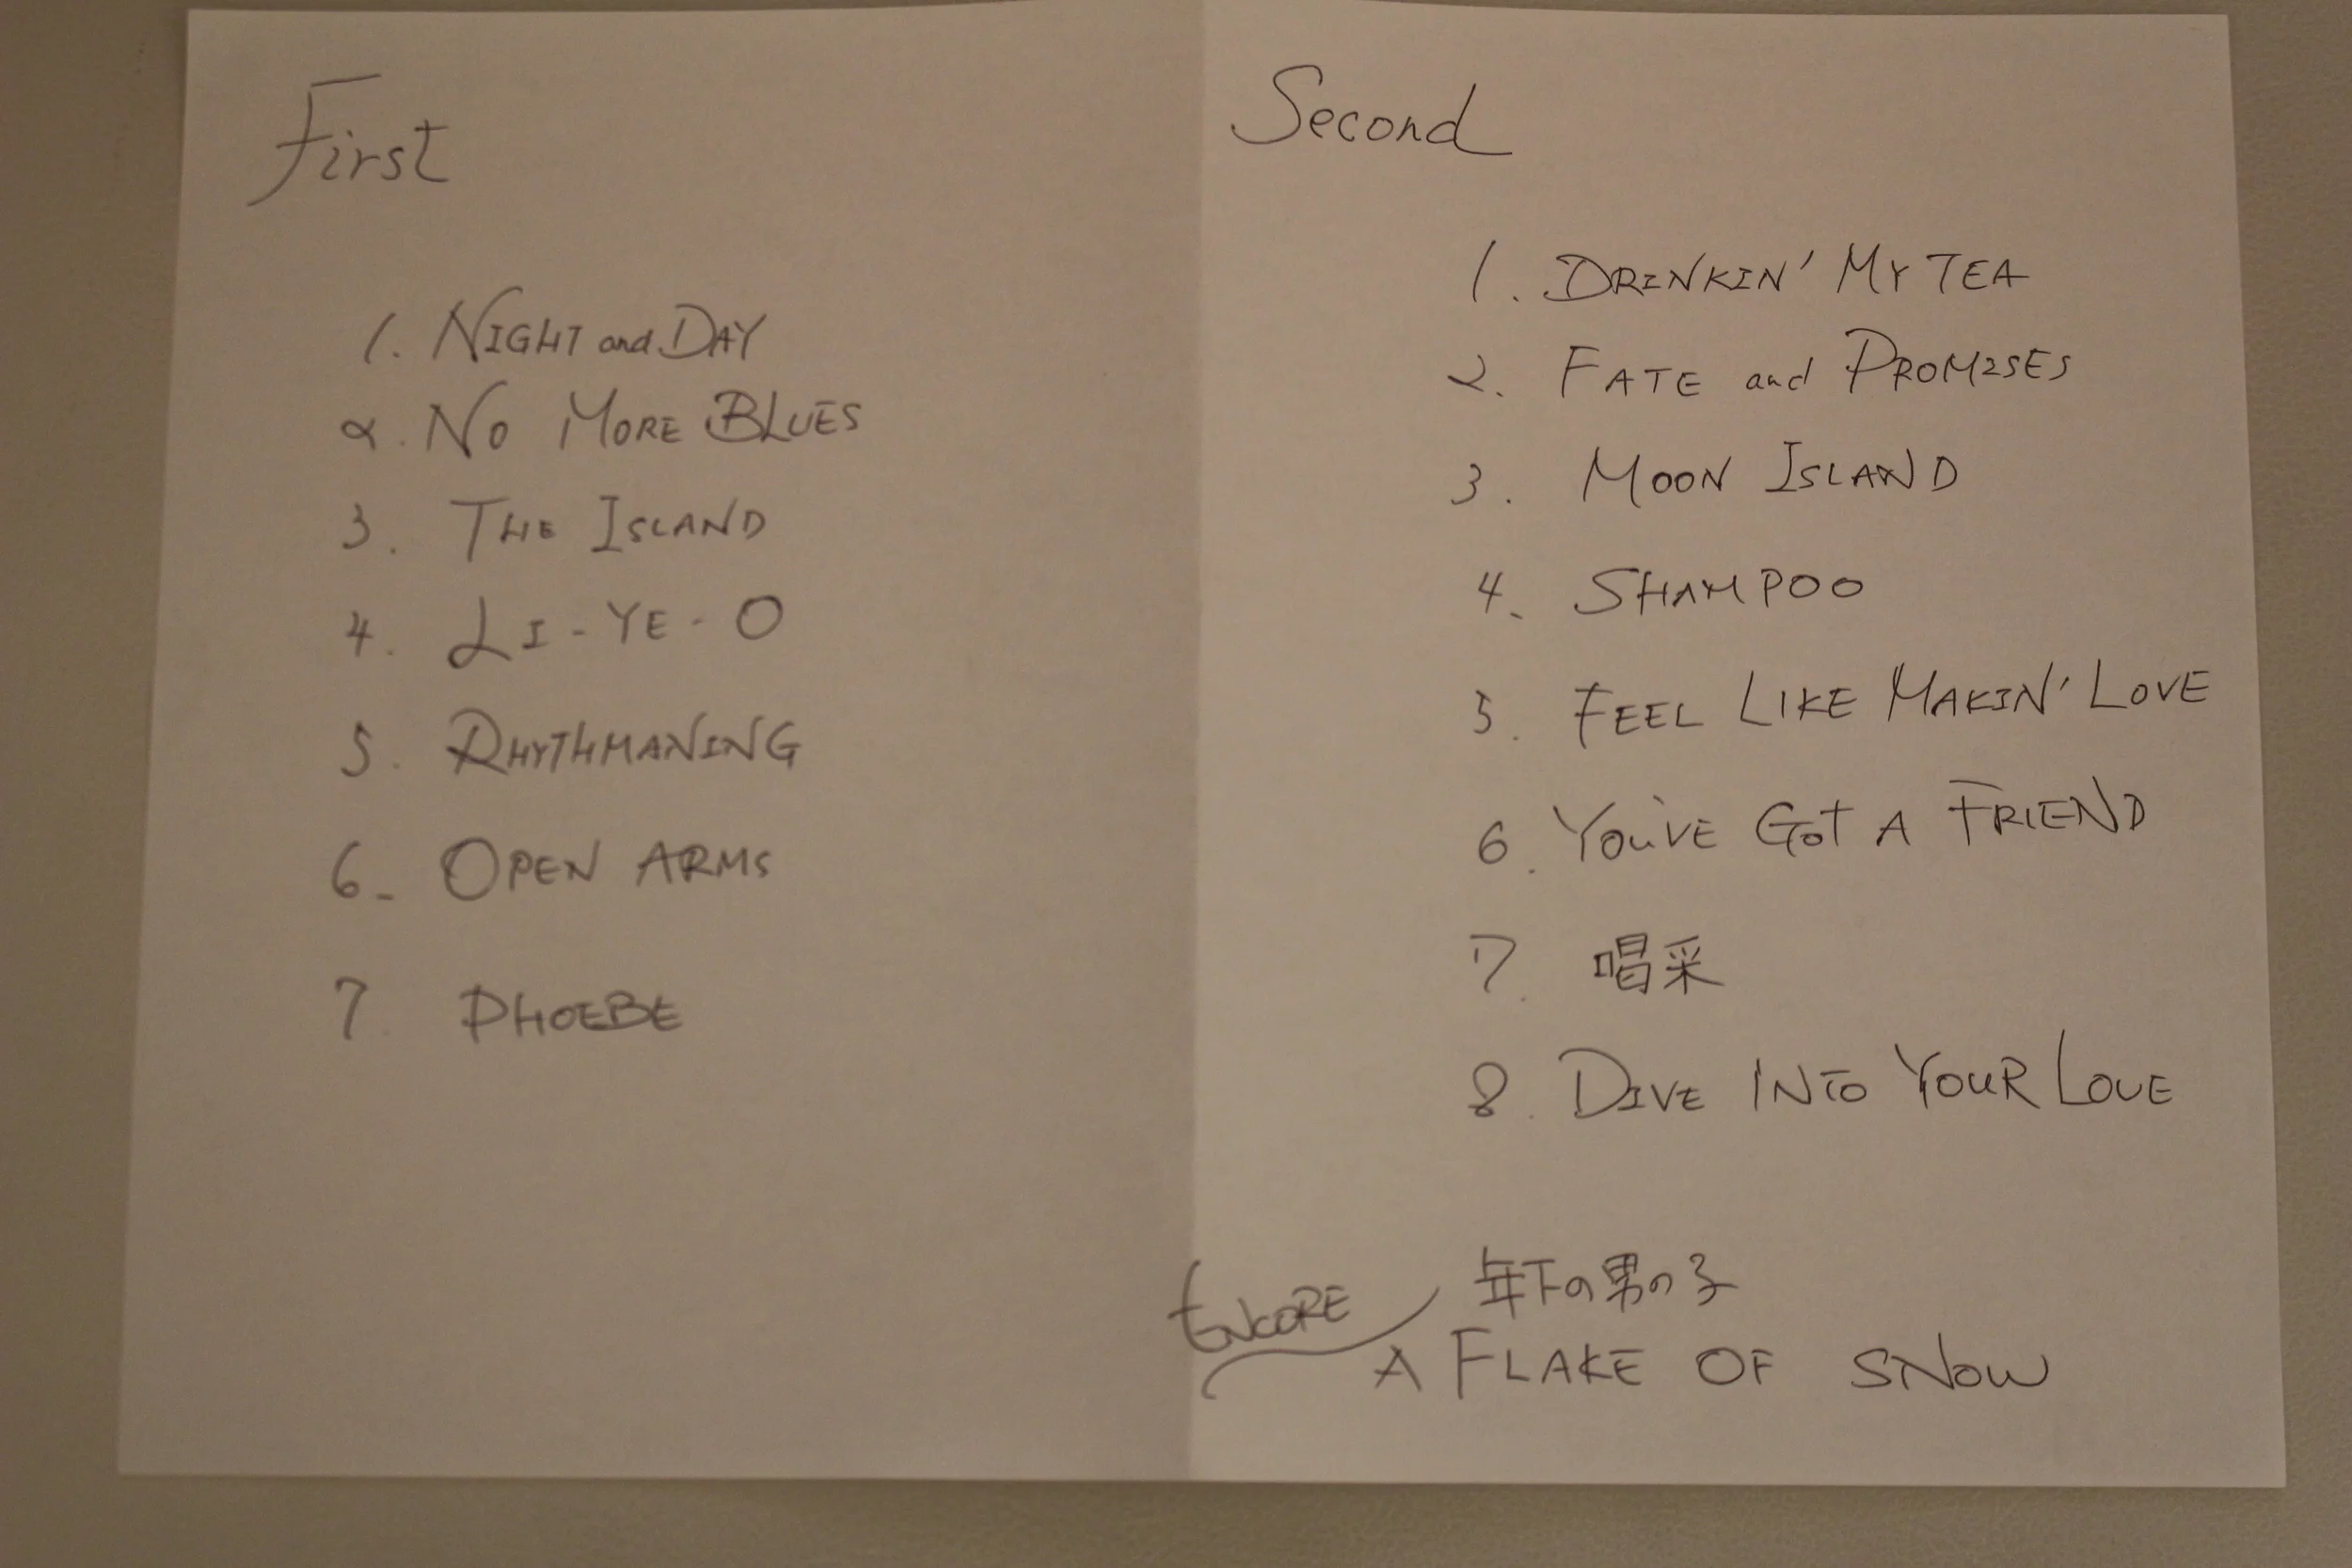 First
1. NIGHT and DAY
2. NO MORE BLUES
3. THE ISLAND
4. LI-YE-O
5. RHYTHMANING
6. OPEN ARMS
7. PHOEBE
Second
1. DRINKIN' MY TEA
2. FATE and PROMISES
3. MOON ISLAND
4. SHAMPOO
5. FEEL LIKE MAKIN' LOVE
6. YOU'VE GOT A FRIEND
7. 喝采
8. DIVE INTO YOUR LOVE
ENCORE 年下の男の子
A FLAKE OF SNOW